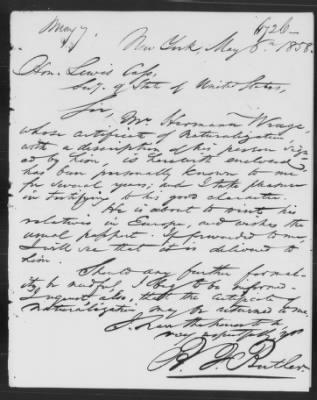 May 7
6726
New York, May 6th 1858.
Hon. Lewis Cass,
Secy. of State of United States,
Sir,
Mr. Hermann
whose certificate of Naturalization
with a description of his person sign-
ed by him, is herewith enclosed
has been personally known to me
for several years; and I take pleasure
in testifying to his good character.
He is about to visit his
relatives in Europe, and wishes the
usual passport. If forwarded to me,
I will see that it is delivered to
him.
Should any further formal-
ity be needful, I beg to be informed.
I request also, that the certificate of
naturalization may be returned to me.
I have the honor to be
very respectfully yrs
B. F. Butler